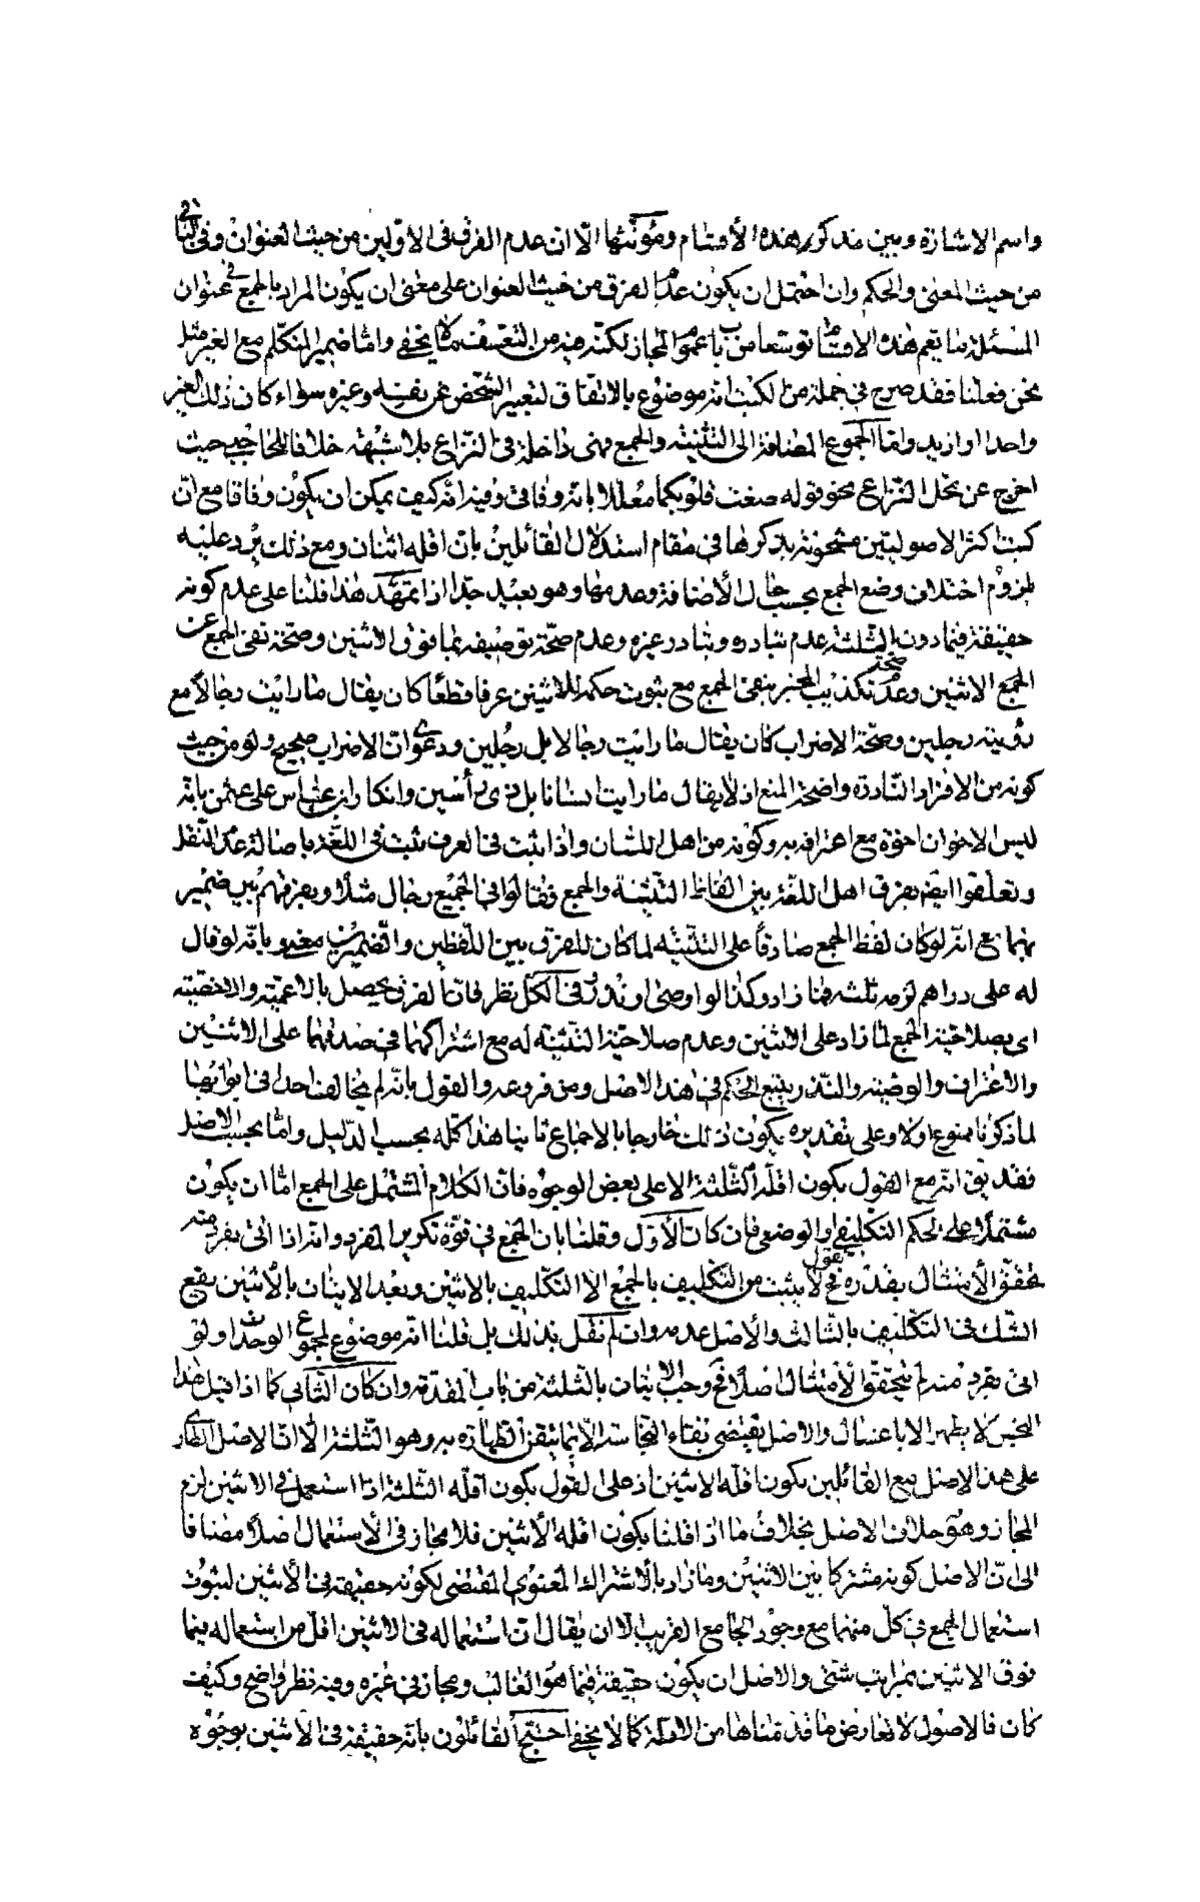 واسم الاشارة وبين مذكر هذه الأقسام ومؤنثها الّا ان عدم الفرق فى الاوّلين من حيث العنوان وفى الثانى
من حيث المعنى والحكم وان احتمل ان يكون عدم الفرق من حيث العنوان على معنى ان يكون المراد بالجمع فى عنوان
المسئلة ما يعم هذه الاقسام توسعا من باب عموم المجاز لكنّه فيه من التعسّف ما لا يخفى وامّا ضمير المتكلّم مع الغير مثل
نحن فعلنا فقد صرح فى جملة من الكتب انه موضوع بالاتفاق لتعبير الشخص عن نفسه وغيره سواء كان ذلك الغير
واحدا او ازيد وامّا الجموع المضافة الى التثنية والجمع فهى داخلة فى النزاع بلا شبهة خلافا للحاجبى حيث
اخرج عن محل النزاع نحو قوله صغت قلوبكما معللا بانه وفاقى وفيه انّه كيف يمكن ان يكون وفاقا مع انّ
كتب اكثر الاصوليين مشحونة بذكرها فى مقام استدلال القائلين بان اقله اثنان ومع ذلك يرد عليه
لزوم اختلاف وضع الجمع بحسب حال الأضافة وعدمها وهو بعيد جدّا اذا تمهّد هذا فلنا على عدم كونه
حقيقة فيما دون الثلثة عدم تبادره وتبادر غيره وعدم صحّة توصيفه بما فوق الاثنين وصحّة نفى الجمع عن
الجمع الاثنين وعدم صحة تكذيب المخبر بنفى الجمع مع ثبوت حكمه للاثنين عرفا قطعًا كان يقال ما رايت رجالًا مع
رؤيته رجلين وصحّة الاضراب كان يقال ما رايت رجالا بل رجلين ودعوى انّ الاضراب صحيح ولو من حيث
كونه من الافراد النّادرة واضحة المنع اذ لا يقال ما رايت انسانا بل ذى رأسين وانكار ابن عبّاس على عثمن بانّه
ليس الاخوان اخوة مع اعترافه به وكونه من اهل اللسان واذا ثبت فى العرف ثبت فى اللغة باصالة عدم النقل
وتعلّقوا ايضم بفرق اهل اللغة بين الفاظ التّثنية والجمع فقالوا فى الجمع رجال مثلًا وبفرقهم بين ضمير
يهما مع انّه لو كان لفظ الجمع صادقًا على التثنيه لما كان للفرق بين اللّفظين والضّميرين معنى وبانّه لو قال
له على دراهم لزمه ثلثة فما زاد وكذا لو اوصى او نذر وفى الكل نظر فان الفرق يحصل بالاعمية والاخصّيّة
اى بصلاحية الجمع لما زاد على الاثنين وعدم صلاحيّة التّثنية له مع اشتراكهما فى صدقهما على الاثنين
والاعتراف والوصيّة والنّذر يتبع الحكم فى هذا الاصل ومن فروعه والقول بانّه لم يخالف احد فى ابوابها
لما ذكرنا ممنوع اولا وعلى تقديره يكون ذلك خارجا بالاجماع ثانيا هذا كله بحسب الدّليل وامّا بحسب الاصل
فقد يق انّه مع القول بكون اقلّه الثّلثة الا على بعض الوجوه فانّ الكلام المشتمل على الجمع امّا ان يكون
مشتملًا على الحكم التكليفى او الوضعى فان كان الاوّل وقلنا بان الجمع فى قوّة تكرير المفرد وانه اذا اتى بفرد منه
تحقق الأمتثال بقدره فح نقول لا يثبت من التكليف بالجمع الا التكليف بالاثنين وبعد الاتيان بالأثنين يقع
الشك فى التكليف بالثالث والأصل عدمه وان لم نقل بذلك بل قلنا انه موضوع لمجموع الوحدات ولو
اتى بفرد منه لم يتحقق الأمتثال اصلًا فح وجب الاتيان بالثلثة من باب المقدّمة وان كان الثّانى كما اذا قيل هذا
النجس لا يطهر الا باغسال والاصل يقتضى بقاء النجاسة الّا بما يتقن الطهارة به وهو الثّلثة الّا انّ الاصل الطارى
على هذا الاصل مع القائلين بكون اقلّه الاثنين اذ على القول بكون اقلّه الثلثة اذا استعمل فى الاثنين لزم
المجاز وهو خلاف الاصل بخلاف ما اذا قلنا بكون اقله الأثنين فلا مجاز فى الأستعمال اصلًا مضافا
الى انّ الاصل كونه مشتركا بين الاثنين وما زاد بالأشتراك المعنوى المقتضى لكونه حقيقة فى الأثنين لثبوت
استعمال الجمع فى كلّ منهما مع وجود الجامع القريب الّا ان يقال انّ استعماله فى الاثنين اقلّ من استعماله فيما
فوق الاثنين بمراتب شتّى والاصل ان يكون حقيقة فيما هو الغالب ومجاز فى غيره وفيه نظر واضح وكيف
كان فالاصول لا تعارض ما قدّمناها من الادلّة كما لا يخفى احتج القائلون بانّه حقيقة فى الاثنين بوجوه